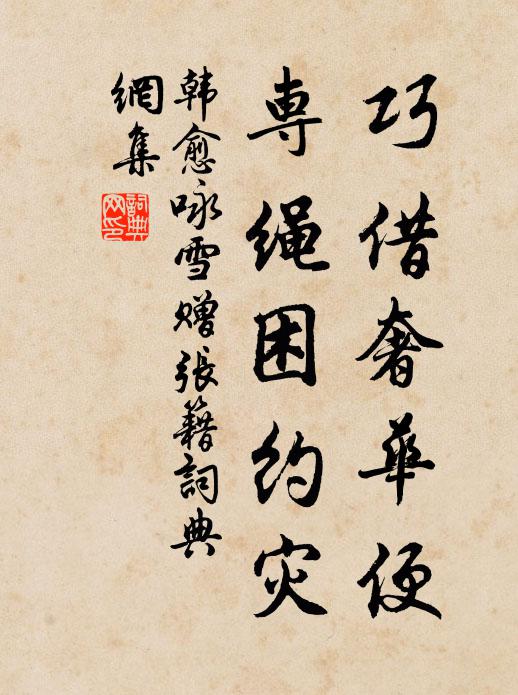 巧借奢華便
専繩困約灾
韩愈咏雪贈張籍詞典
網集
詞典
网印